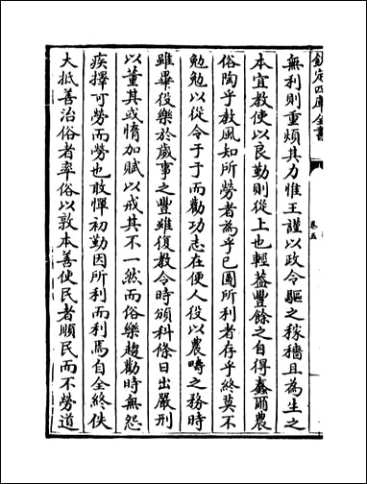 欽定四庫全書
卷五
無利則重煩其力惟王謹以政令驅之稼穡且為生之
本宜教使以良勤則從上也輕葢豐餘之自得蠢爾農
俗陶乎教風知所勞者為乎已圖所利者存乎終莫不
勉勉以從令于于而勸功志在便人役以農時之務時
雖畢役樂於歲事之豐雖復教令時頒科條日出嚴刑
以董其或惰加賦以戒其不一然而俗樂趨勸時無怨
疾擇可勞而勞也敢憚初勤因所利而利焉自全終佚
大抵善治俗者率俗以敦本善使民者順民而不勞道